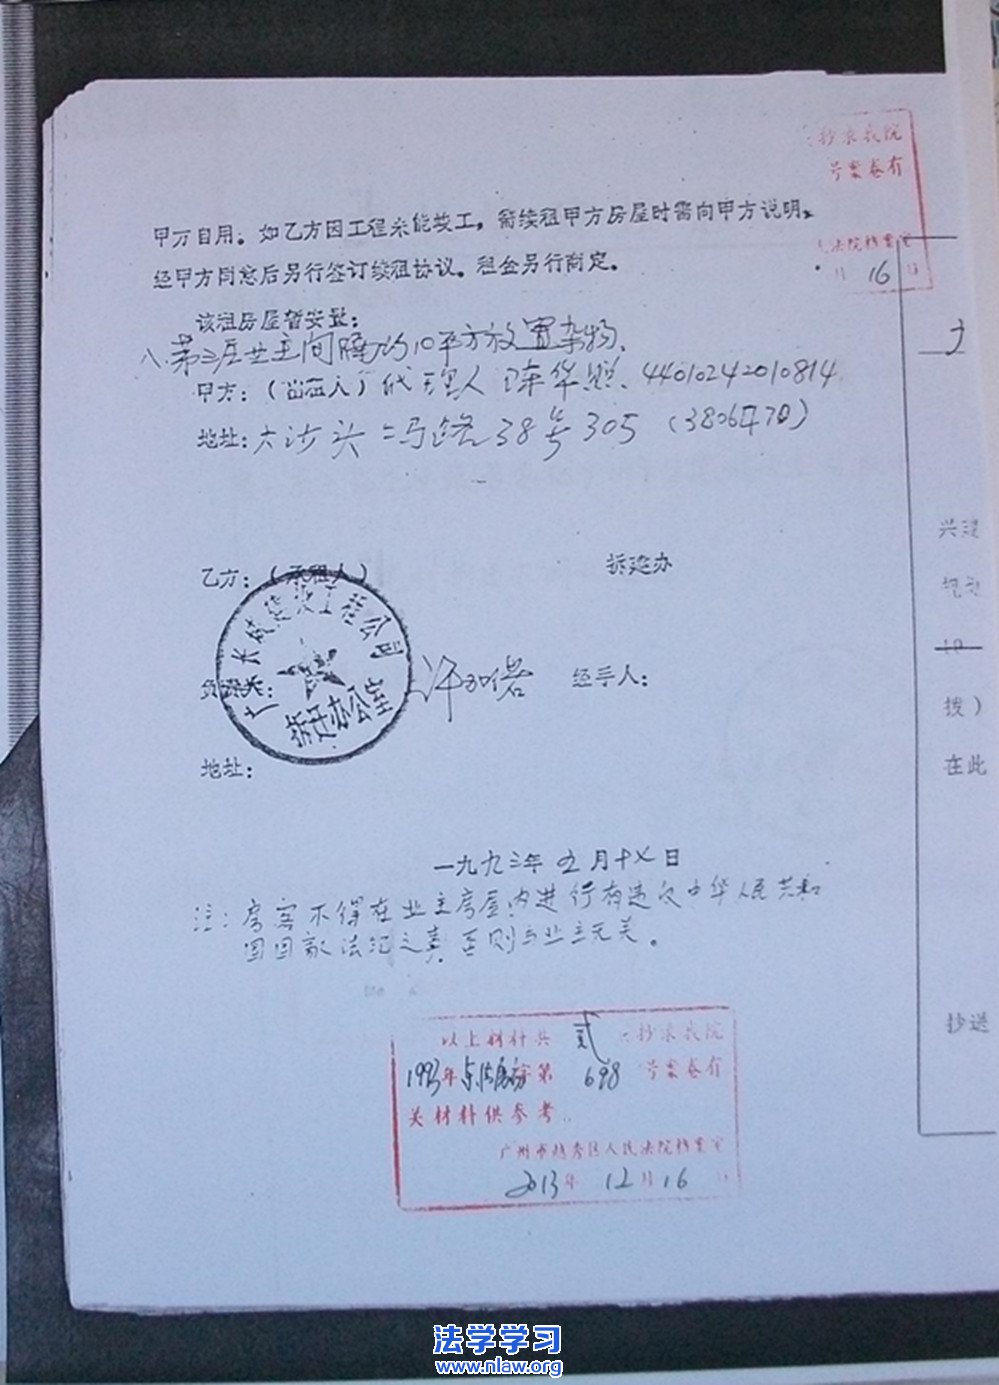 抄录我院
号案卷有
法院档案室
月 16 日
甲方自用。如乙方因工程未能竣工，需续租甲方房屋时需向甲方说明，
经甲方同意后另行签订续租协议。租金另行商定。
该租房屋暂安置：
八、第三层业主间隔约10平方放置杂物、
甲方：（出租人）代理人 陈华 、44010242010814
地址：大沙头二马路38号305
乙方：（承租人）
拆迁办
广东长城建筑工程公司
拆迁办公室
负责人：
经手人：
地址：
一九九三年五月十七日
注：房客不得在业主房屋内进行有违反中华人民共和
国 法 之 否则与业主无关。
以上材料共 贰 抄录我院
1993年东法房字第 698 号案卷有
关材料供参考．
广州市越秀区人民法院档案室
2013年 12月16日
兴建
拨）
在此
抄送
法学学习
www.nlaw.org